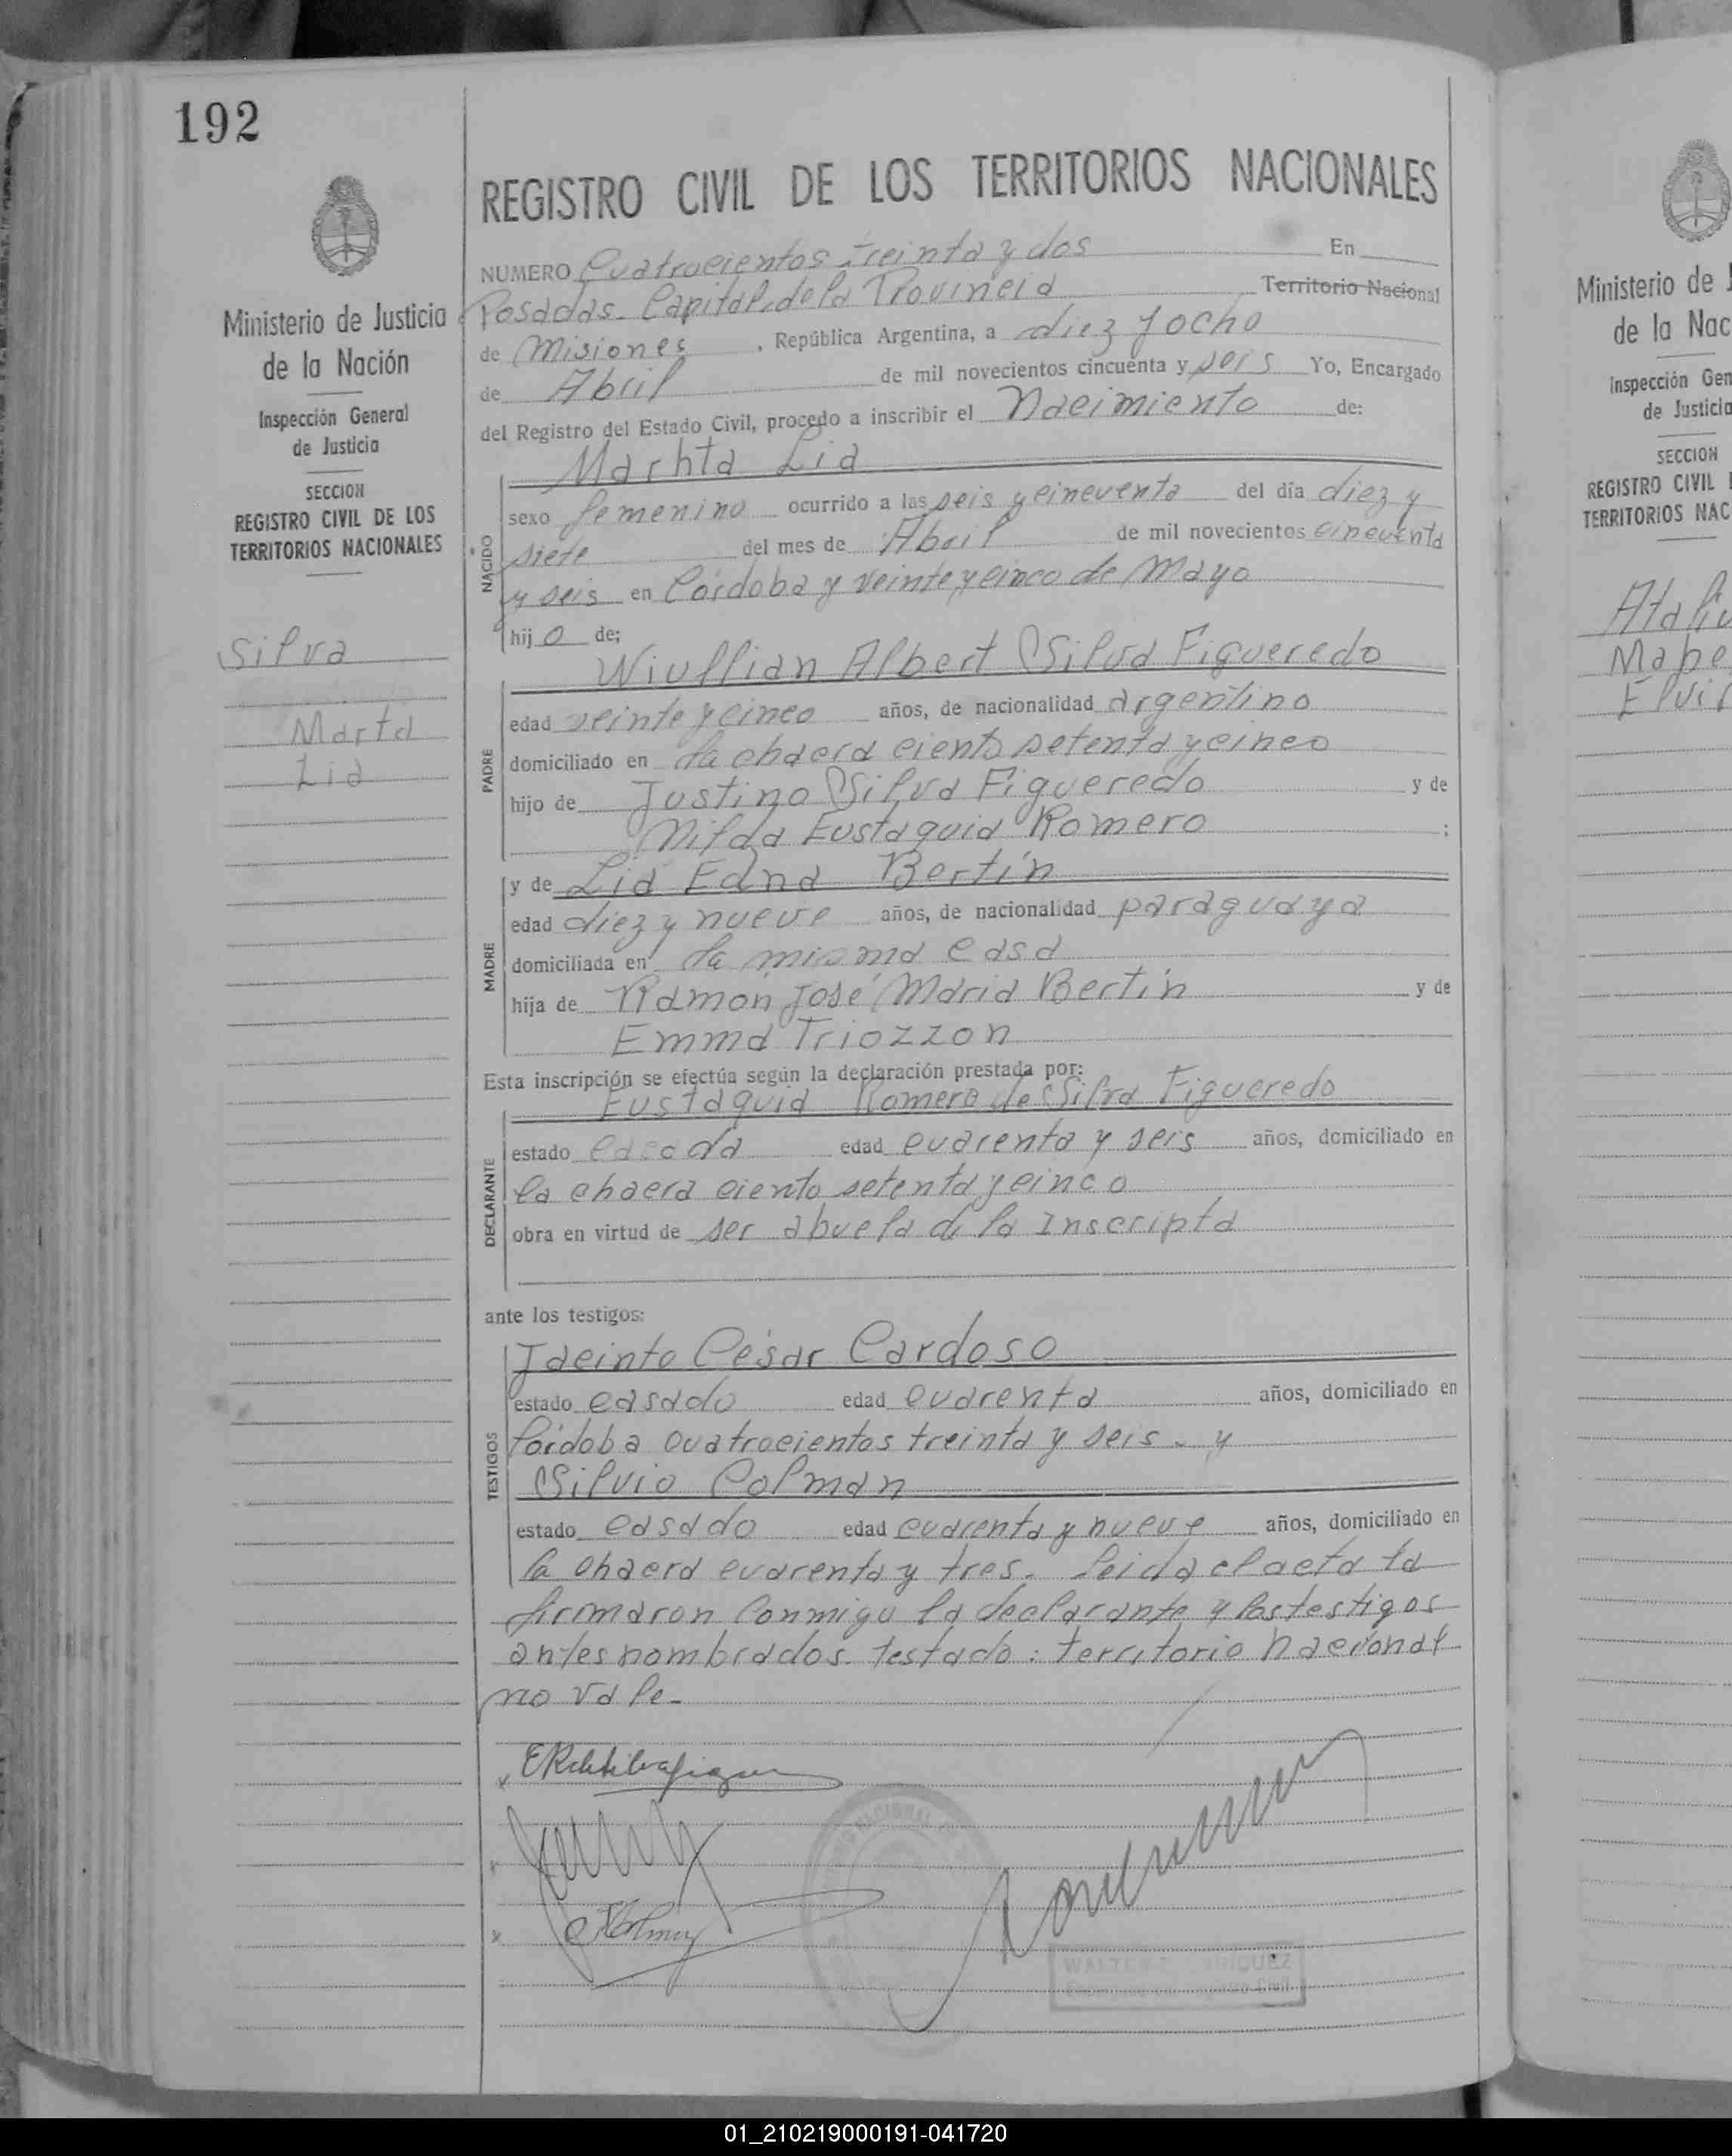 192
REGISTRO CIVIL DE LOS TERRITORIOS NACIONALES
Ministerio de Justicia
de la Nación
Inspección General
de Justicia
SECCION
REGISTRO CIVIL DE LOS
TERRITORIOS NACIONALES
Silva
Marta
Lia
NUMERO Cuatrocientos treinta y dos En
Posadas. Capital de la Provincia Territorio Nacional
de Misiones, República Argentina, a diez y ocho
de Abril de mil novecientos cincuenta y seis Yo, Encargado
del Registro del Estado Civil, procedo a inscribir el Nacimiento de:
NACIDO
Marhta Lia
sexo femenino ocurrido a las seis y cincuenta del día diez y
siete del mes de Abril de mil novecientos cincuenta
y seis en Córdoba y veinte y cinco de Mayo
hij o de;
PADRE
Wiullian Albert Silva Figueredo
edad veinte y cinco años, de nacionalidad argentino
domiciliado en la chacra ciento setenta y cinco
hijo de Justino Silva Figueredo y de
Nilda Eustaquia Romero ;
MADRE
y de Lia Edna Bertín
edad diez y nueve años, de nacionalidad paraguaya
domiciliada en la misma casa
hija de Ramon José Maria Bertín y de
Emma Triozzon
Esta inscripción se efectúa según la declaración prestada por:
DECLARANTE
Eustaquia Romero de Silva Figueredo
estado casada edad cuarenta y seis años, domiciliado en
la chacra ciento setenta y cinco
obra en virtud de ser abuela de la Inscripta
ante los testigos:
TESTIGOS
Jacinto César Cardoso
estado casado edad cuarenta años, domiciliado en
Córdoba cuatrocientos treinta y seis. y
Silvio Colman
estado casado edad cuarenta y nueve años, domiciliado en
la chacra cuarenta y tres. Leida el acta la
firmaron conmigo la declarante y los testigos
antes nombrados. testado: territorio nacional
no vale.
Ministerio de J
de la Nac
Inspección Gen
de Justicia
SECCION
REGISTRO CIVIL
TERRITORIOS NAC
01_210219000191-041720